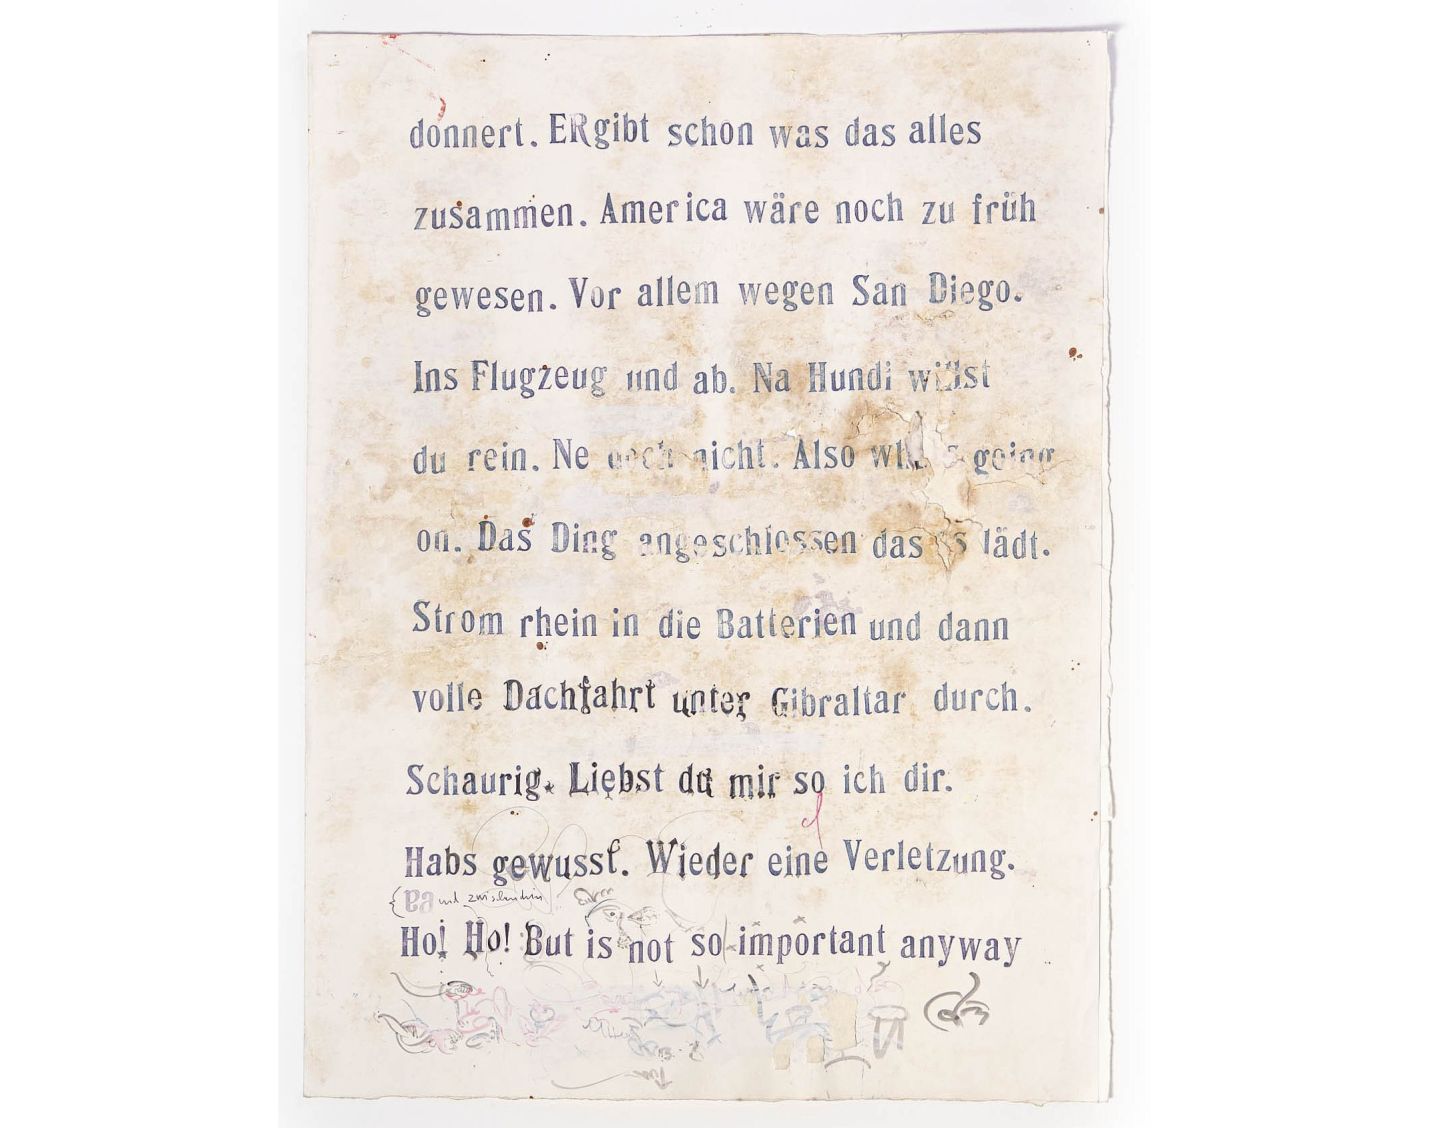 donnert. ERgibt schon was das alles
zusammen. America wäre noch zu früh
gewesen. Vor allem wegen San Diego.
Ins Flugzeug und ab. Na Hundi willst
du rein. Ne doch nicht. Also going
on. Das Ding angeschlossen das es lädt.
Strom rhein in die Batterien und dann
volle Dachfahrt unter Gibraltar durch.
Schaurig. Liebst du mir so ich dir.
Habs gewusst. Wieder eine Verletzung.
Ho! Ho! But is not so important anyway